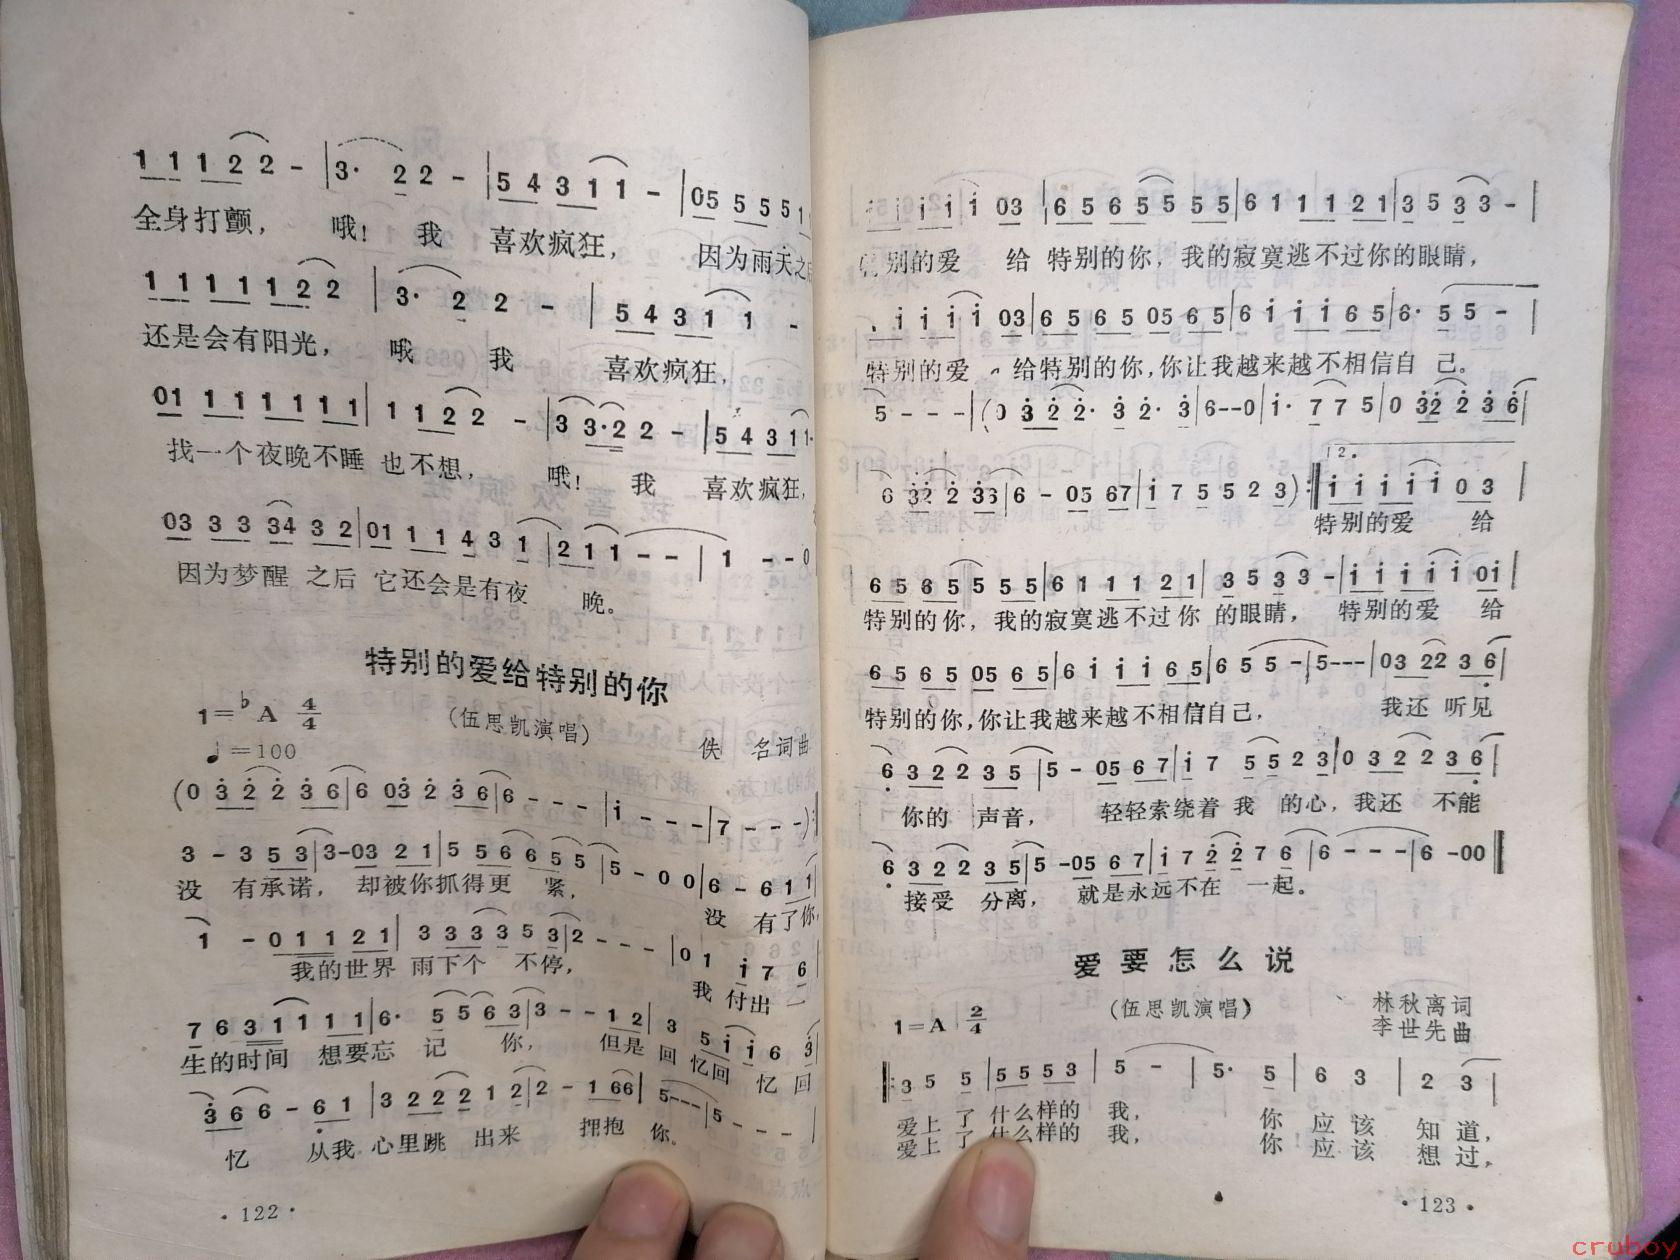 1 1 1 2 2 - | 3· 2 2 - | 5 4 3 1 1 - | 05 5 5 5 1
全身打颤， 哦！ 我 喜欢疯狂， 因为雨天之
1 1 1 1 1 2 2 | 3· 2 2 - | 5 4 3 1 1 -
还是会有阳光， 哦 我 喜欢疯狂，
01 1 1 1 1 1 1 | 1 1 2 2 - | 3 3·2 2 - | 5 4 3 1 1·
找一个夜晚不睡 也不想， 哦！ 我 喜欢疯狂，
03 3 3 34 3 2 | 01 1 1 4 3 1 | 2 1 1 - - | 1 - - 0
因为梦醒 之后 它还会是有夜 晚。
特别的爱给特别的你
1=♭A 4/4
(伍思凯演唱)
♩=100
佚 名词曲
(0 3 2 2 3 6 | 6 03 2 3 6 | 6 - - - | i - - - | 7 - - -)
3 - 3 5 3 | 3-03 2 1 | 5 5 6 6 5 5 | 5 - 0 0 | 6 - 6 1 1
没 有承诺， 却被你抓得更 紧， 没 有了你，
1 - 0 1 1 2 1 | 3 3 3 3 5 3 | 2 - - - | 0 1 i 7 6
我的世界 雨下个 不停， 我 付出 一
7 6 3 1 1 1 1 1 | 6· 5 5 6 3 | 3 - - 1 2 | 3 5 i i 6 3
生的时间 想要忘 记 你， 但是 回 忆回 忆 回
3 6 6 - 6 1 | 3 2 2 2 1 2 | 2 - 1 66 | 5--- | 5 - - -
忆 从我 心里跳 出来 拥抱 你。
·122·
i i i i 03 | 6 5 6 5 5 5 5 | 6 1 1 1 2 1 | 3 5 3 3 - |
别的爱 给 特别的你，我的寂寞逃不过你的眼睛，
i i i i 03 | 6 5 6 5 05 6 5 | 6 i i i 6 5 | 6· 5 5 - |
特别的爱 给特别的你，你让我越来越不相信自 己。
5 - - - | (0 3 2 2· 3 2· 3 | 6--0 | i· 7 7 5 | 0 32 2 3 6 |
6 32 2 36 | 6 - 05 67 | i 7 5 5 2 3) :‖ 12. i i i i i 0 3 |
特别的爱 给
6 5 6 5 5 5 5 5 | 6 1 1 1 2 1 | 3 5 3 3 - | i i i i i 0i |
特别的你，我的寂寞逃不过你 的眼睛， 特别的爱 给
6 5 6 5 05 6 5 | 6 i i i 6 5 | 6 5 5 - | 5--- | 03 22 3 6 |
特别的你，你让我越来越不相信自己， 我还 听见
6 3 2 2 3 5 | 5 - 05 6 7 | i 7 5 5 2 3 | 0 3 2 2 3 6 |
你的 声音， 轻轻索绕着 我 的心，我还 不能
6 3 2 2 3 5 | 5 -05 6 7 | i 7 2 2 7 6 | 6 - - - | 6 -00 ‖
接受 分离， 就是永远不在 一起。
爱要怎么说
(伍思凯演唱)
林秋离词
1=A 2/4
李世先曲
‖: 3 5 5 | 5 5 5 3 | 5 - | 5· 5 | 6 3 | 2 3 |
爱上 了 什么样的 我， 你 应 该 知 道，
爱上 了 什么样的 我， 你 应 该 想 过，
·123·
cruboy